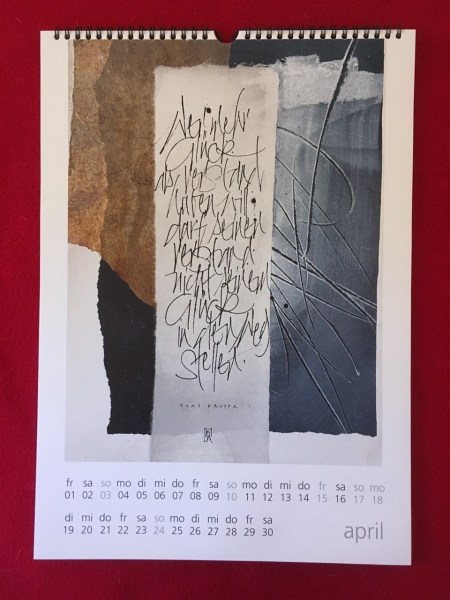 Wer mehr
Glück
als verstand
haben will.
darf seinen
verstand
nicht seinem
Glück
in den Weg
stellen.
fr sa so mo di mi do fr sa so mo di mi do fr sa so mo
01 02 03 04 05 06 07 08 09 10 11 12 13 14 15 16 17 18
di mi do fr sa so mo di mi do fr sa
19 20 21 22 23 24 25 26 27 28 29 30
april